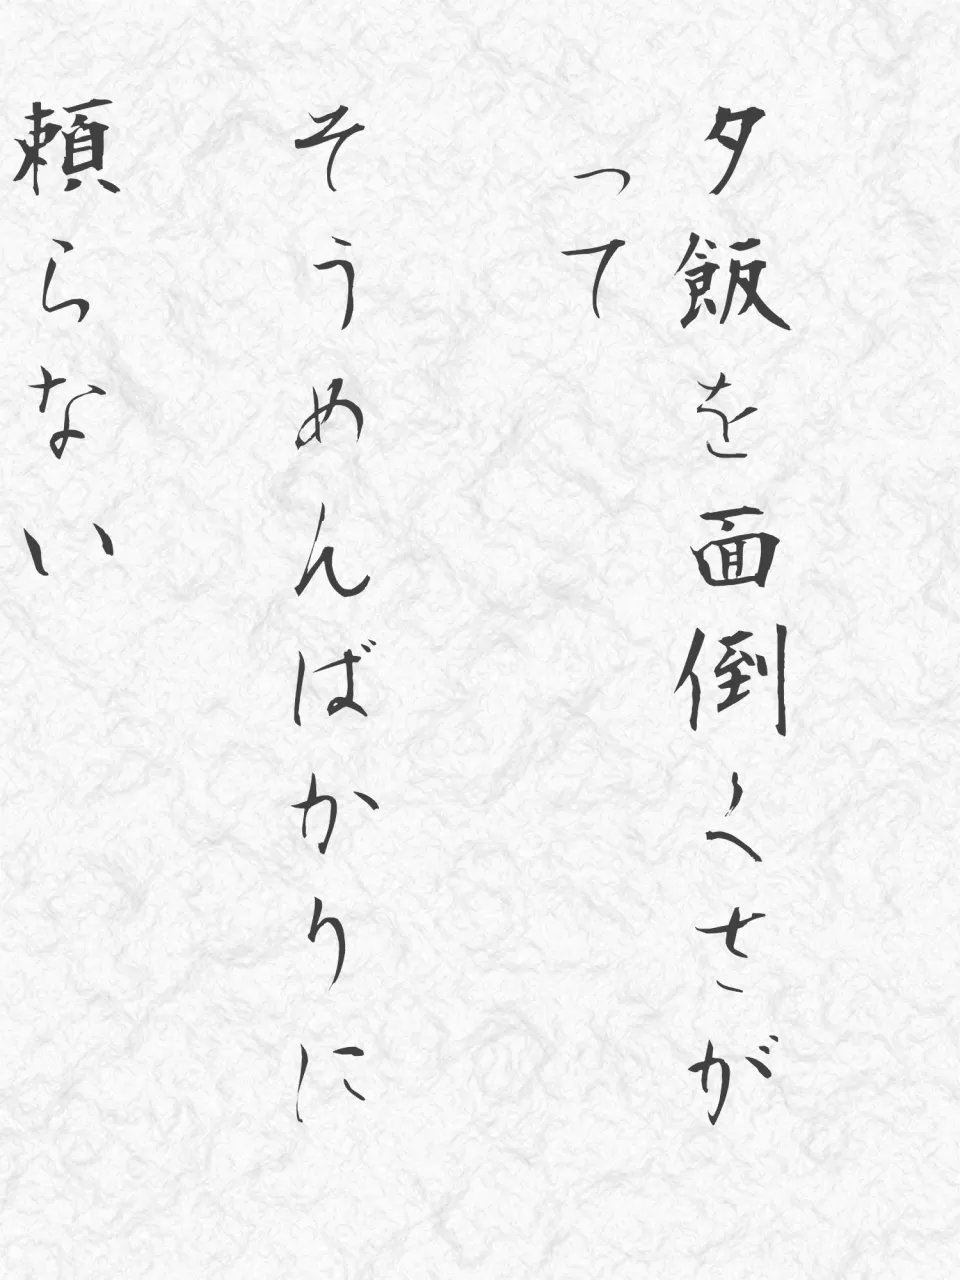 夕飯を面倒くさが
って
そうめんばかりに
頼らない